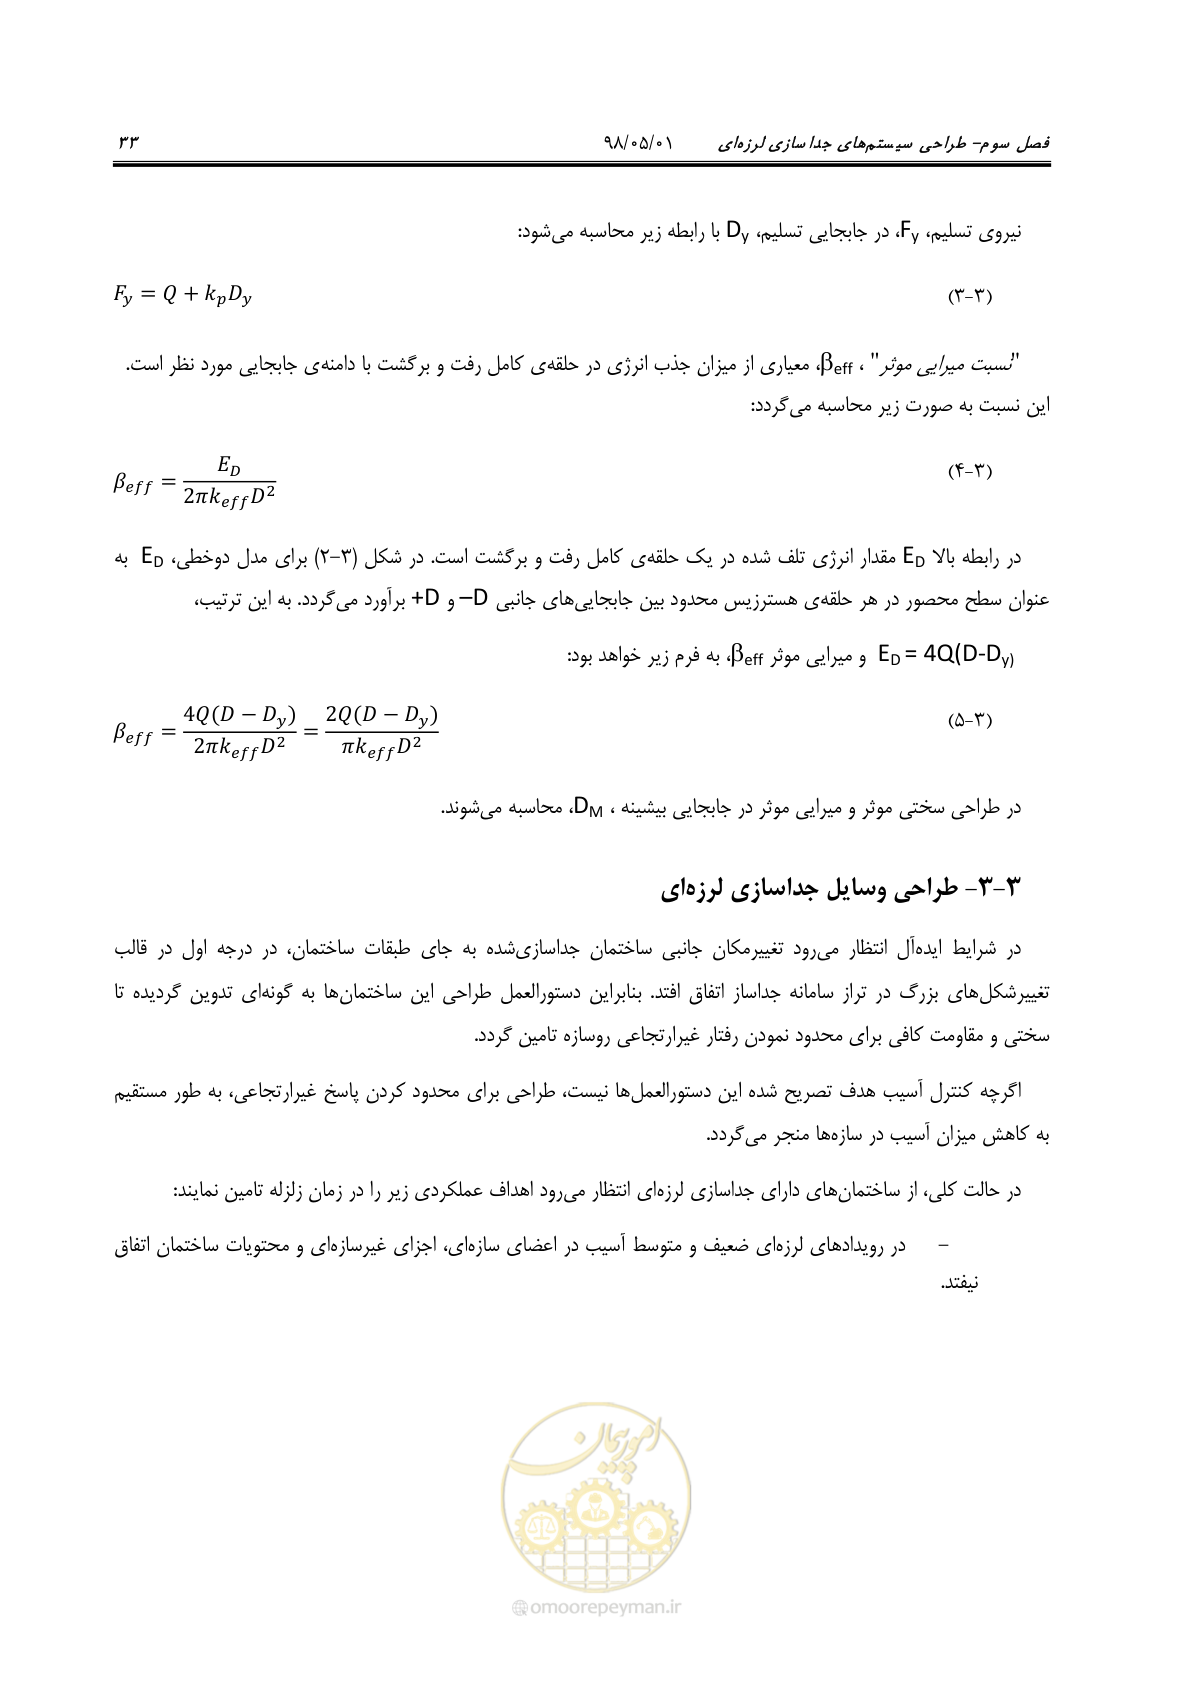 فصل سوم- طراحی سیستم‌های جداسازی لرزه‌ای ۹۸/۰۵/۰۱ ۳۳
نیروی تسلیم، Fy، در جابجایی تسلیم، Dy با رابطه زیر محاسبه می‌شود:
(۳-۳) F_y = Q + k_p D_y
"نسبت میرایی موثر" ، βeff، معیاری از میزان جذب انرژی در حلقه‌ی کامل رفت و برگشت با دامنه‌ی جابجایی مورد نظر است.
این نسبت به صورت زیر محاسبه می‌گردد:
(۳-۴) β_eff = E_D / (2πk_eff D²)
در رابطه بالا ED مقدار انرژی تلف شده در یک حلقه‌ی کامل رفت و برگشت است. در شکل (۳-۲) برای مدل دوخطی، ED به
عنوان سطح محصور در هر حلقه‌ی هسترزیس محدود بین جابجایی‌های جانبی D– و D+ برآورد می‌گردد. به این ترتیب،
ED = 4Q(D-Dy) و میرایی موثر βeff، به فرم زیر خواهد بود:
(۳-۵) β_eff = 4Q(D − D_y) / (2πk_eff D²) = 2Q(D − D_y) / (πk_eff D²)
در طراحی سختی موثر و میرایی موثر در جابجایی بیشینه ، DM، محاسبه می‌شوند.
۳-۳- طراحی وسایل جداسازی لرزه‌ای
در شرایط ایده‌آل انتظار می‌رود تغییرمکان جانبی ساختمان جداسازی‌شده به جای طبقات ساختمان، در درجه اول در قالب
تغییرشکل‌های بزرگ در تراز سامانه جداساز اتفاق افتد. بنابراین دستورالعمل طراحی این ساختمان‌ها به گونه‌ای تدوین گردیده تا
سختی و مقاومت کافی برای محدود نمودن رفتار غیرارتجاعی روسازه تامین گردد.
اگرچه کنترل آسیب هدف تصریح شده این دستورالعمل‌ها نیست، طراحی برای محدود کردن پاسخ غیرارتجاعی، به طور مستقیم
به کاهش میزان آسیب در سازه‌ها منجر می‌گردد.
در حالت کلی، از ساختمان‌های دارای جداسازی لرزه‌ای انتظار می‌رود اهداف عملکردی زیر را در زمان زلزله تامین نمایند:
– در رویدادهای لرزه‌ای ضعیف و متوسط آسیب در اعضای سازه‌ای، اجزای غیرسازه‌ای و محتویات ساختمان اتفاق
نیفتد.
امور پیمان
omoorepeyman.ir